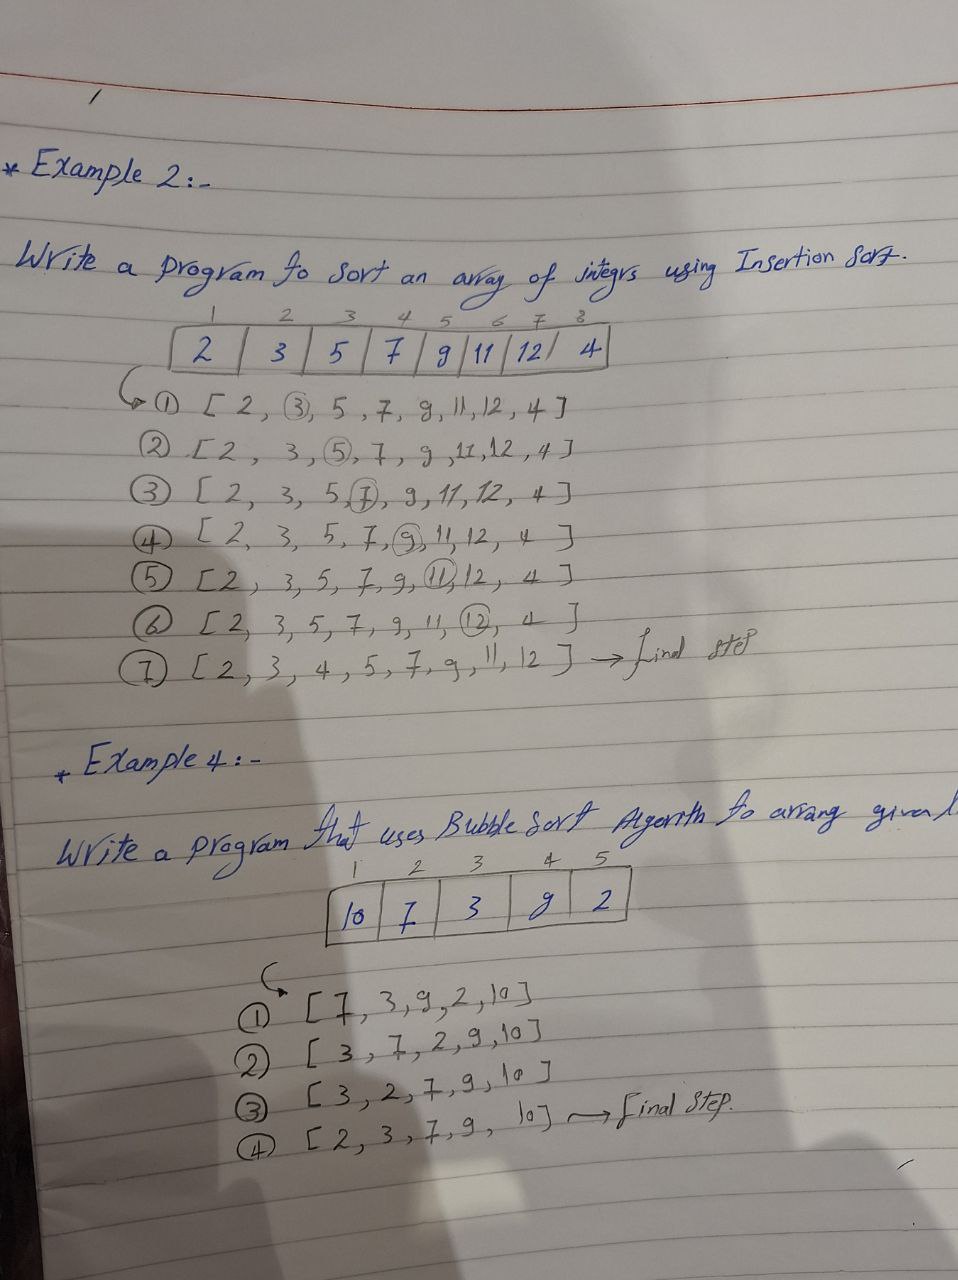 * Example 2:-
Write a program to sort an array of integrs using Insertion Sort.
1 2 3 4 5 6 7 8
2 3 5 7 9 11 12 4
① [ 2, ③, 5, 7, 9, 11, 12, 4 ]
② [ 2, 3, ⑤, 7, 9, 11, 12, 4 ]
③ [ 2, 3, 5, ⑦, 9, 11, 12, 4 ]
④ [ 2, 3, 5, 7, ⑨, 11, 12, 4 ]
⑤ [ 2, 3, 5, 7, 9, ⑪, 12, 4 ]
⑥ [ 2, 3, 5, 7, 9, 11, ⑫, 4 ]
⑦ [ 2, 3, 4, 5, 7, 9, 11, 12 ] → final step
* Example 4:-
Write a program that uses Bubble Sort Algorith to arrang
1 2 3 4 5
10 7 3 9 2
① [ 7, 3, 9, 2, 10 ]
② [ 3, 7, 2, 9, 10 ]
③ [ 3, 2, 7, 9, 10 ]
④ [ 2, 3, 7, 9, 10 ] → final step.